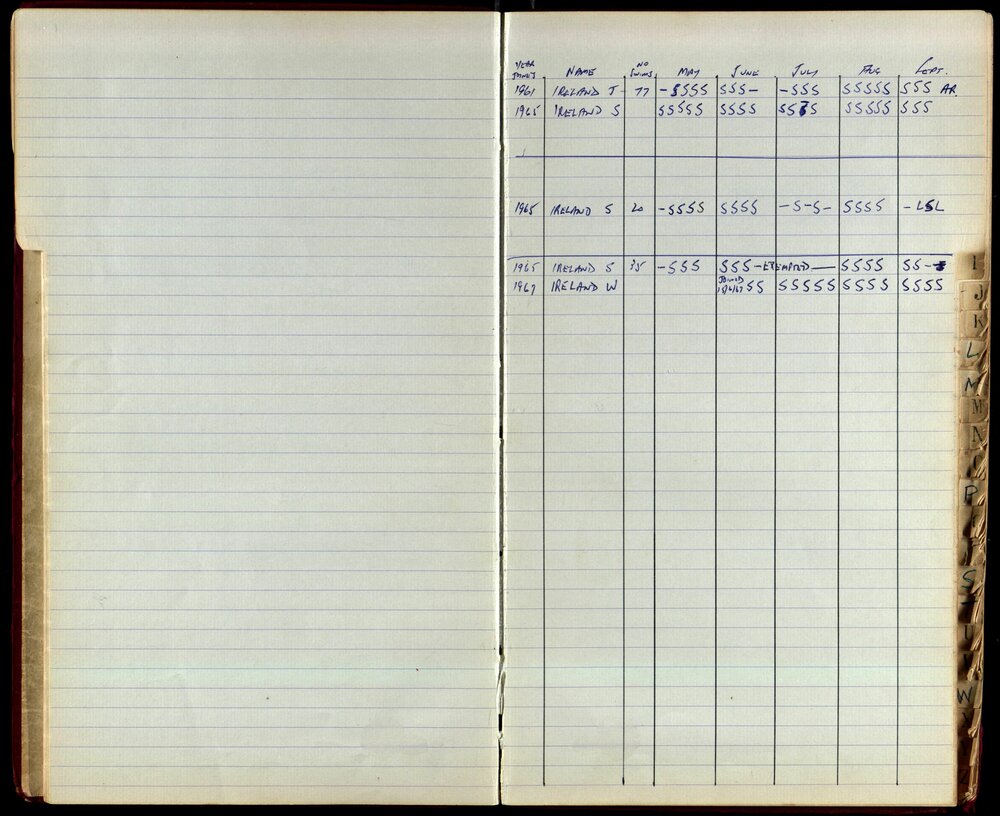 YEAR JOINED NAME NO SWIMS MAY JUNE JULY AUG SEPT.
1961 IRELAND J 77 -SSSS SSS- -SSS SSSSS SSS AR.
1965 IRELAND S SSSSS SSSS SSSS SSSSS SSS
1965 IRELAND S 20 -SSSS SSSS -S-S- SSSS -LSL
1965 IRELAND S 35 -SSS SSS-EXEMPTED— SSSS SS-
1967 IRELAND W JOINED SS SSSSS SSSS SSSS
I
J
K
L
M
M
N
P
S
T
U
W